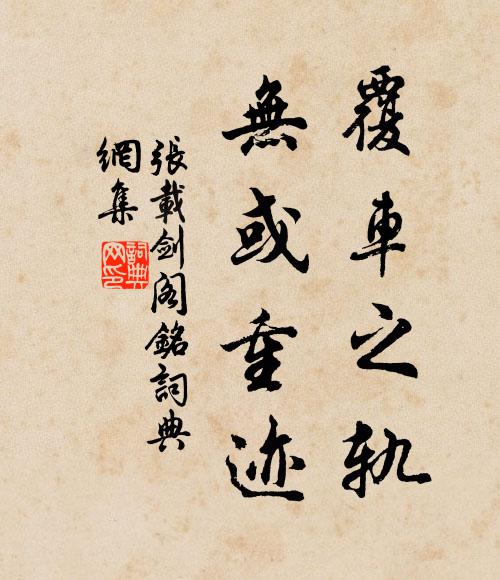 覆車之軌
無或重迹
張載剑阁銘詞典
網集
詞典
网印